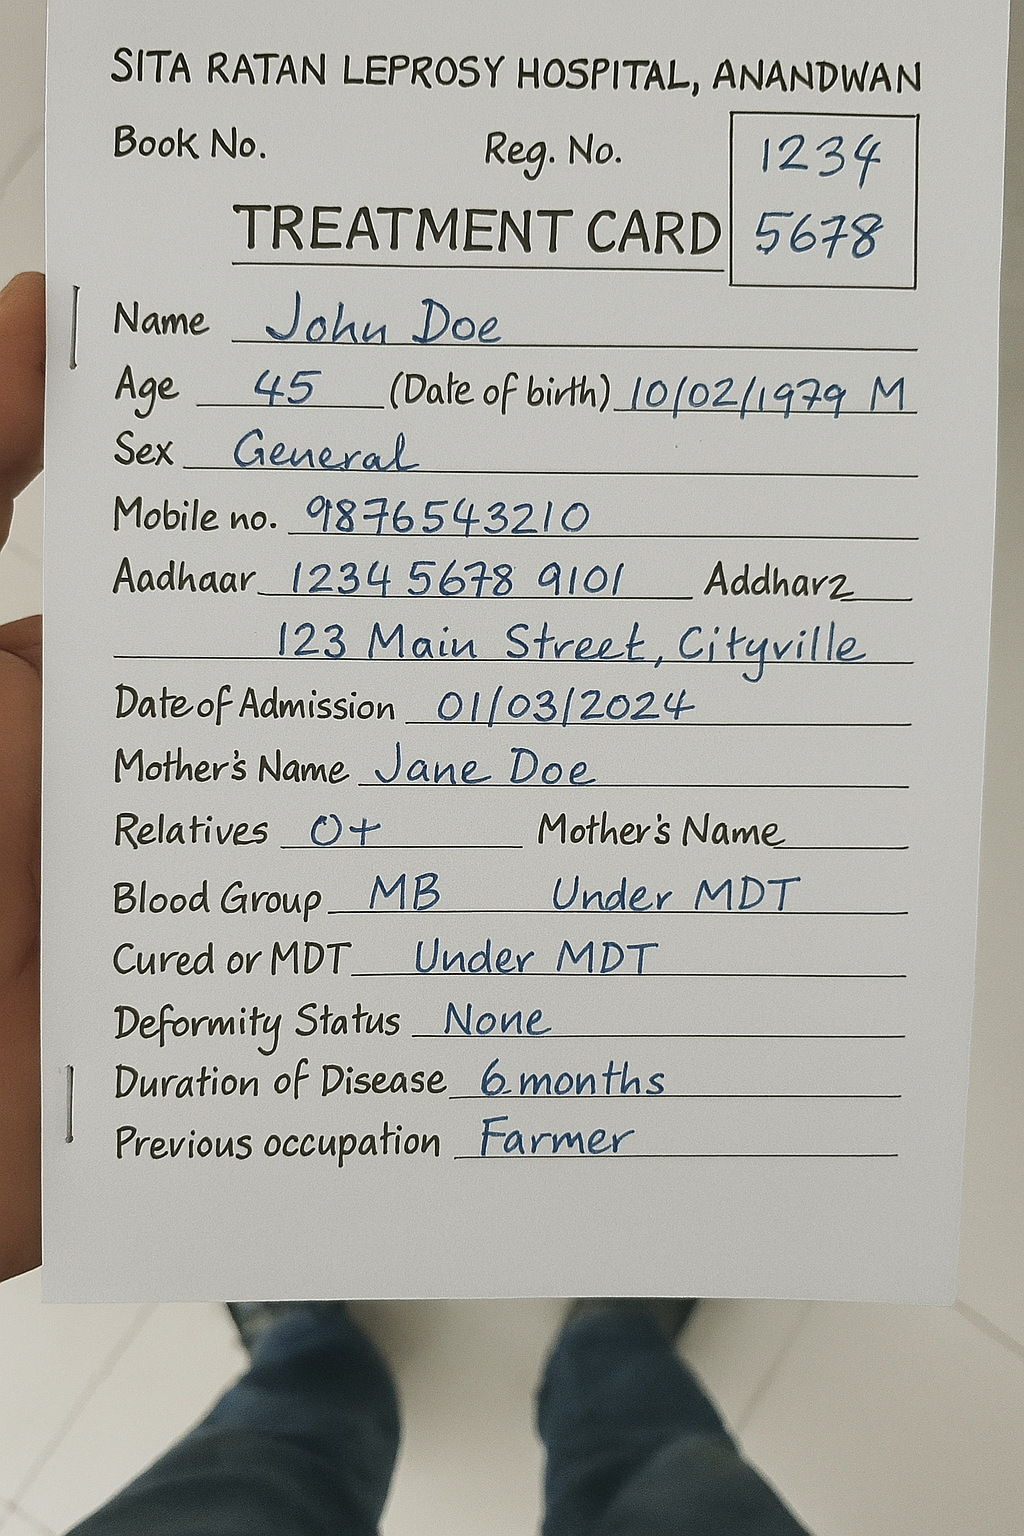 SITA RATAN LEPROSY HOSPITAL, ANANDWAN
Book No. Reg. No. 1234
TREATMENT CARD 5678
Name John Doe
Age 45 (Date of birth) 10/02/1979 M
Sex General
Mobile no. 9876543210
Aadhaar 1234 5678 9101 Addharz
123 Main Street, Cityville
Date of Admission 01/03/2024
Mother's Name Jane Doe
Relatives O+ Mother's Name
Blood Group MB Under MDT
Cured or MDT Under MDT
Deformity Status None
Duration of Disease 6 months
Previous occupation Farmer